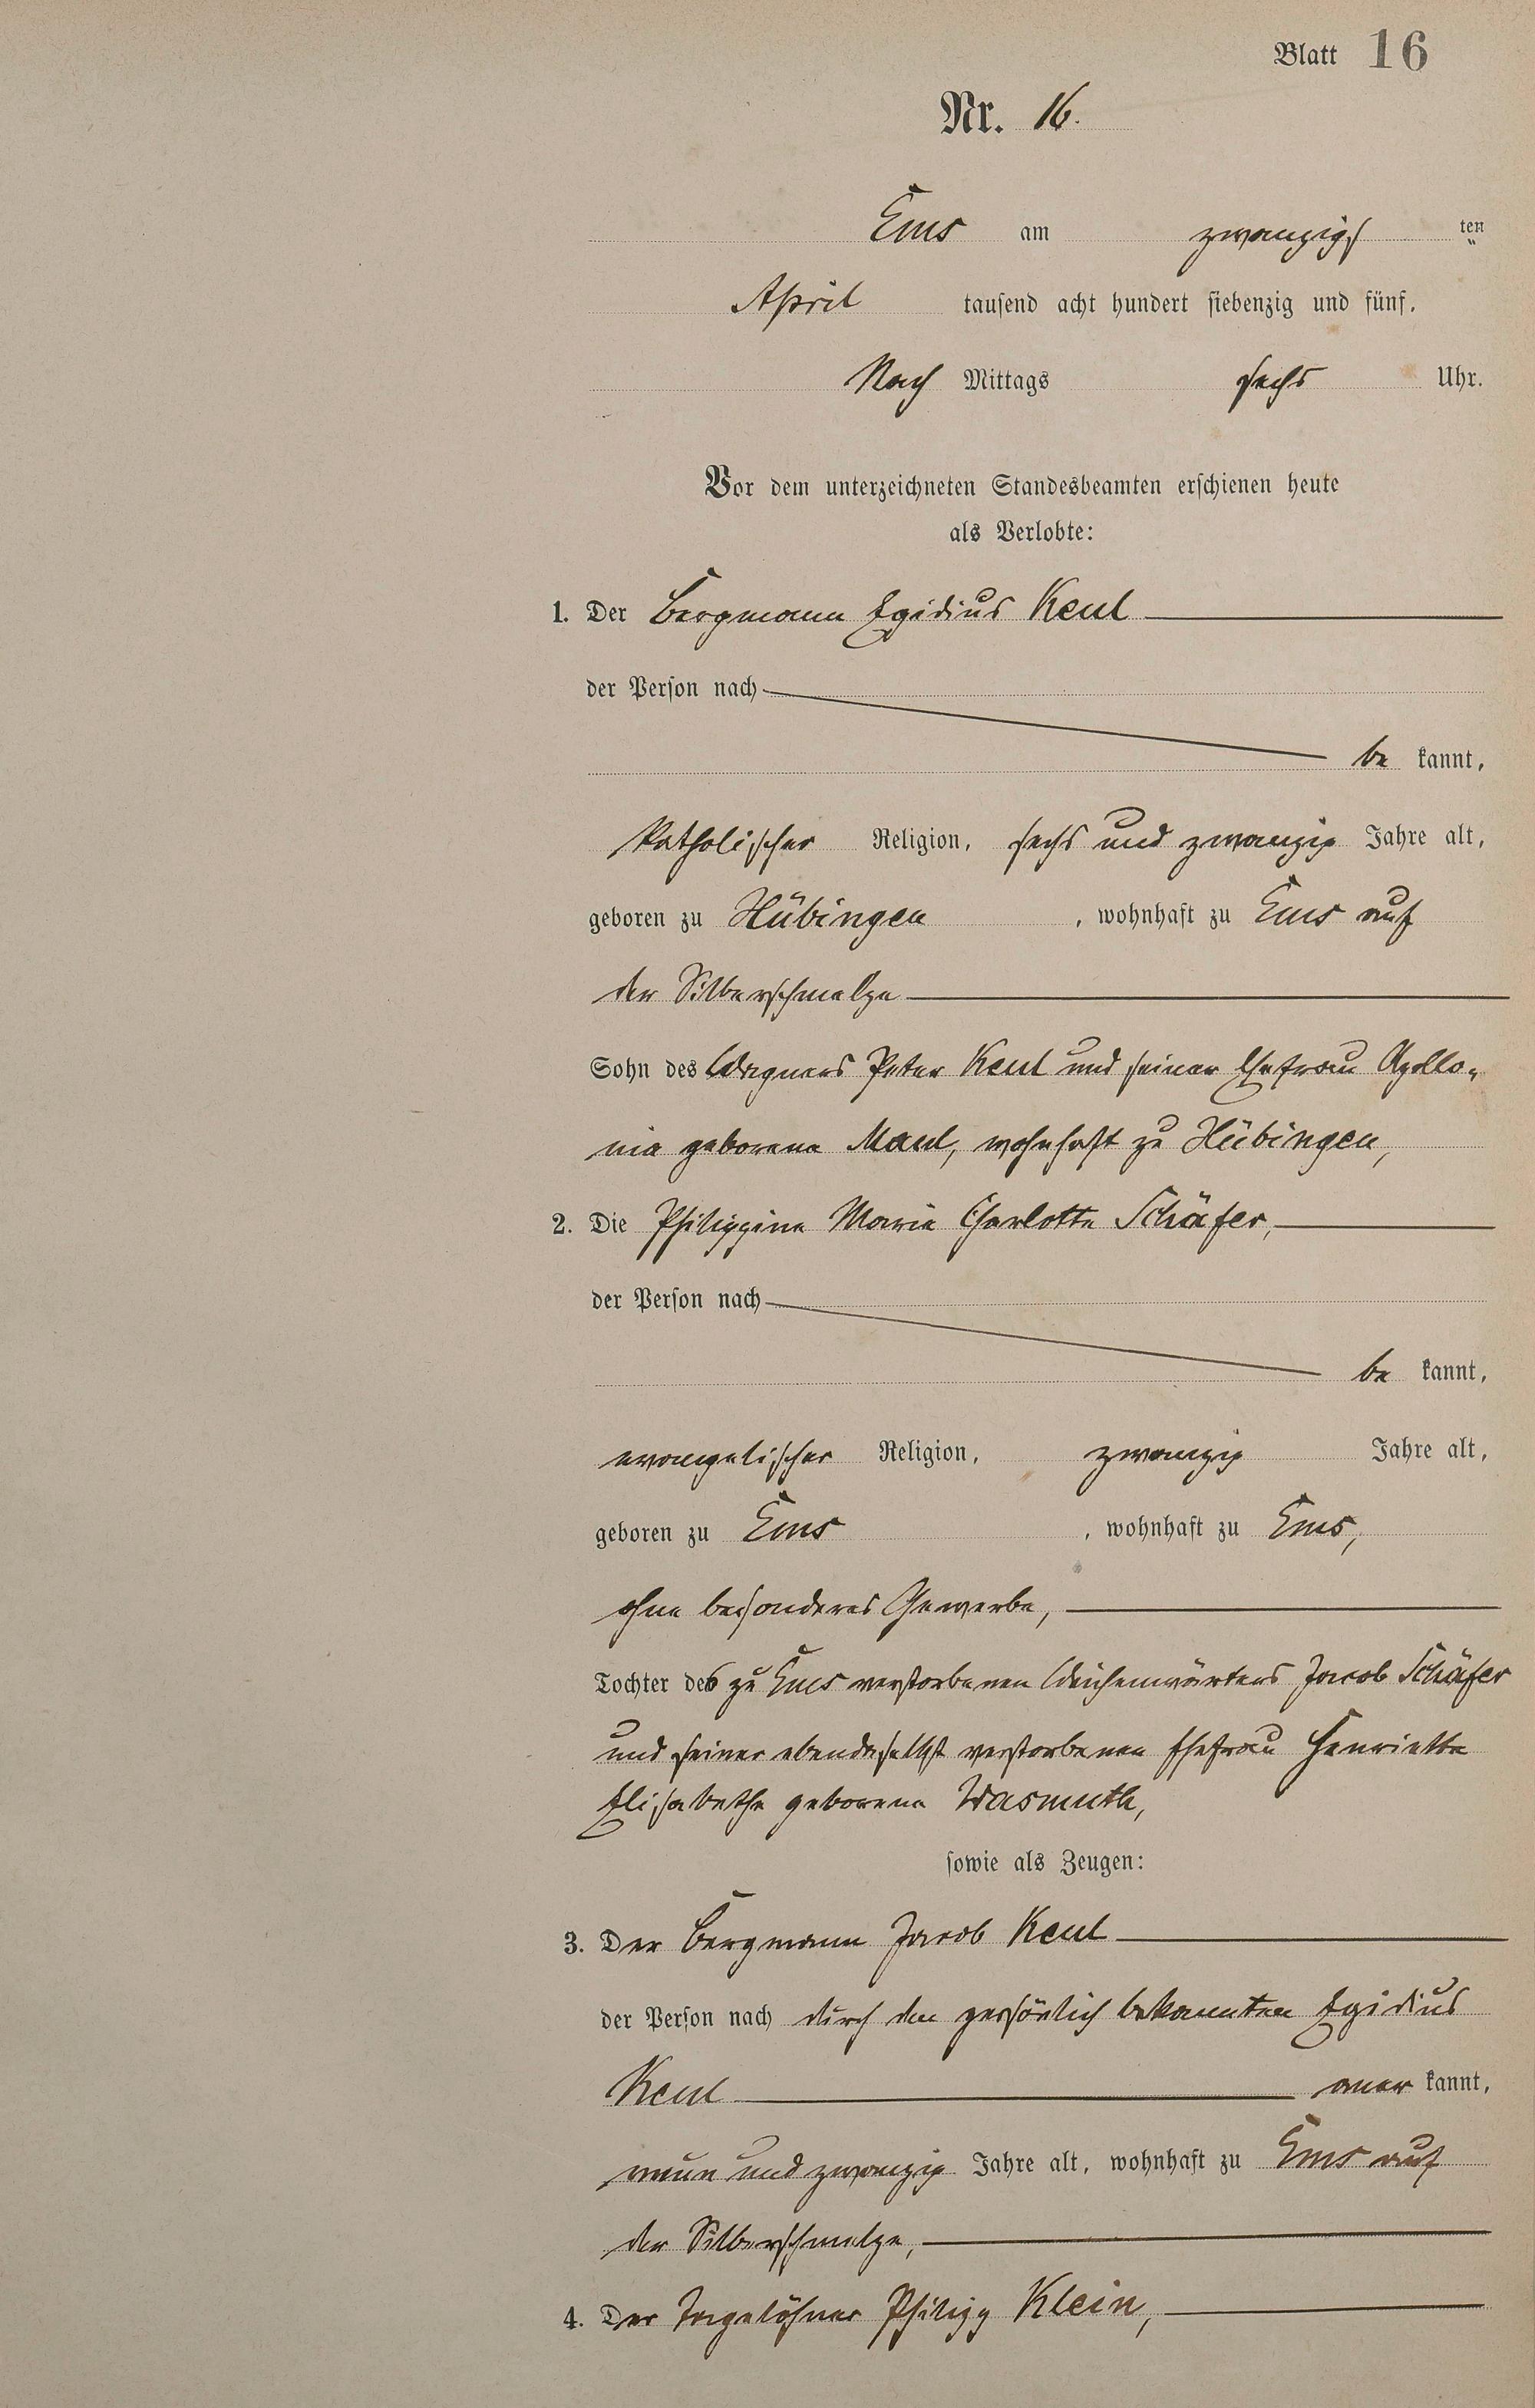 Blatt 16
Nr. 16.
Ems am zwanzigs ten
April tausend acht hundert siebenzig und fünf.
Nach Mittags sechs Uhr.
Vor dem unterzeichneten Standesbeamten erschienen heute
als Verlobte:
1. Der Bergmann Egidius Keul
der Person nach
be kannt,
katholischer Religion, sechs und zwanzig Jahre alt,
geboren zu Hübingen, wohnhaft zu Ems auf
der Silberschmelze
Sohn des Wagners Peter Keul und seiner Ehefrau Apollo-
nia geborene Maul, wohnhaft zu Hübingen,
2. Die Philippine Maria Charlotte Schäfer,
der Person nach
be kannt,
evangelischer Religion, zwanzig Jahre alt,
geboren zu Ems, wohnhaft zu Ems,
ohne besonderes Gewerbe,
Tochter des zu Ems verstorbenen Weichenwärters Jacob Schäfer
und seiner ebendaselbst verstorbenen Ehefrau Henriette
Elisabethe geborene Wasmuth,
sowie als Zeugen:
3. Der Bergmann Jacob Keul
der Person nach durch den persönlich bekannten Egidius
Keul aner kannt,
neun und zwanzig Jahre alt, wohnhaft zu Ems auf
der Silberschmelze,
4. Der Tagelöhner Philipp Klein,